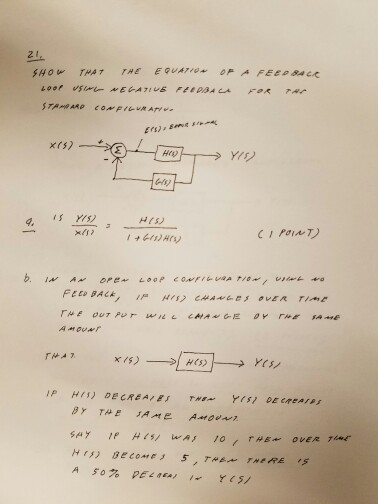 21.
SHOW THAT THE EQUATION OF A FEEDBACK
LOOP USING NEGATIVE FEEDBACK FOR THE
STANDARD CONFIGURATION
E(S) = ERROR SIGNAL
X(S) + Σ H(S) Y(S)
-
G(S)
a. IS Y(S)/X(S) = H(S)/1 + G(S)H(S) (1 POINT)
b. IN AN OPEN LOOP CONFIGURATION, USING NO
FEEDBACK, IF H(S) CHANGES OVER TIME
THE OUTPUT WILL CHANGE BY THE SAME
AMOUNT
THAT X(S) H(S) Y(S)
IF H(S) DECREASES THEN Y(S) DECREASES
BY THE SAME AMOUNT.
SAY IF H(S) WAS 10, THEN OVER TIME
H(S) BECOMES 5, THEN THERE IS
A 50% DECREAS IN Y(S)